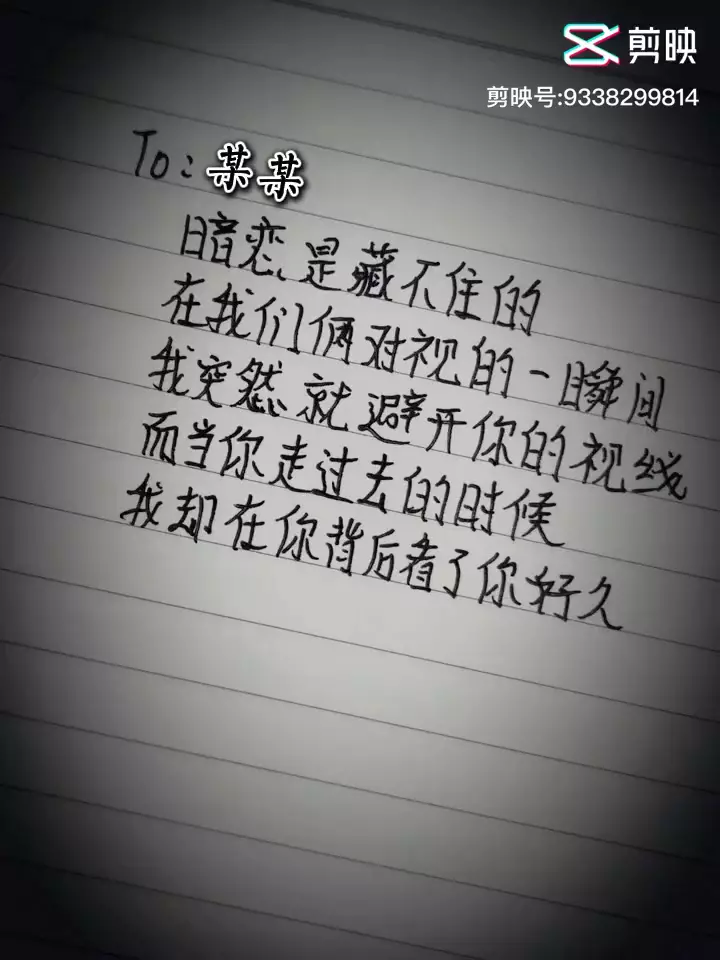 剪映
剪映号:9338299814
To:某某
暗恋是藏不住的
在我们俩对视的一瞬间
我突然就避开你的视线
而当你走过去的时候
我却在你背后看了你好久